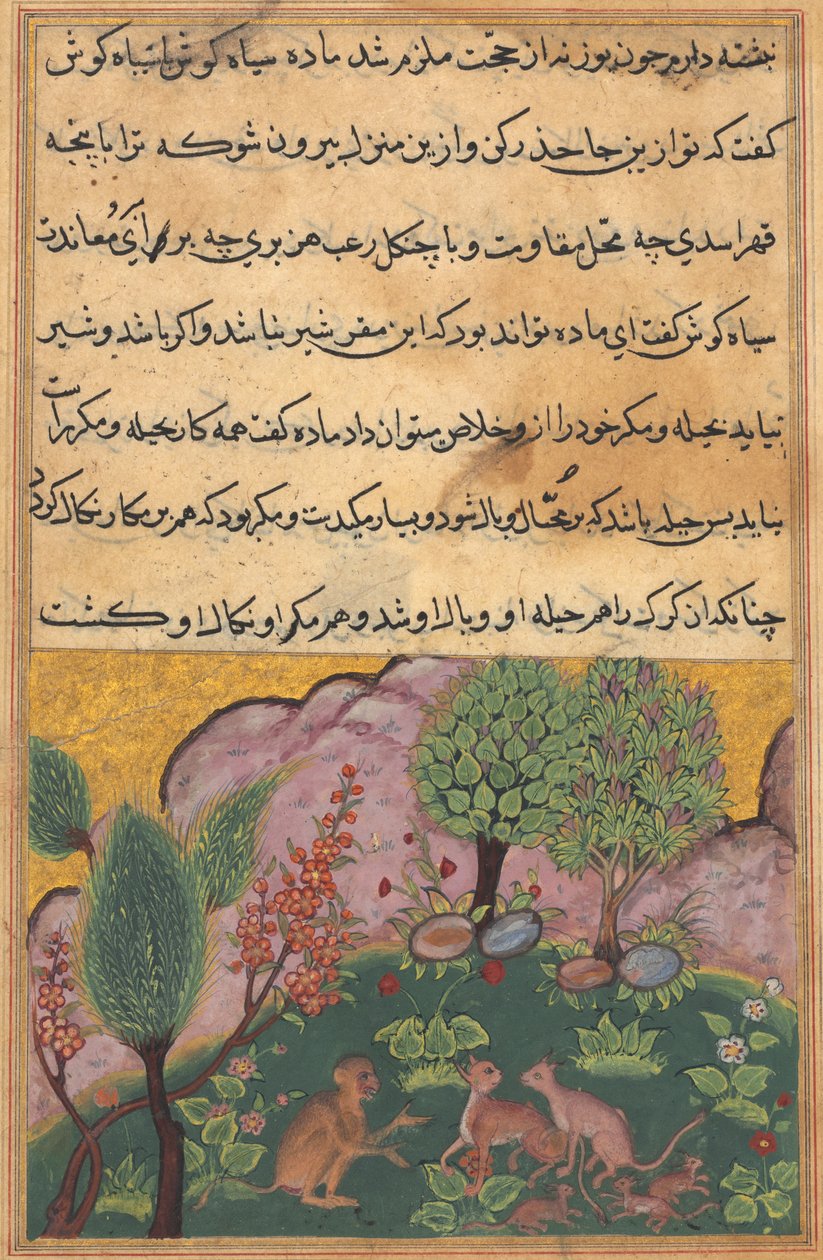 نبشته دارم چون بوزنه از حجّت ملزم شد ماده سیاه کوش با سیاه کوش
کفت که تو ازین جا حذر کن و ازین منزل بیرون شو که ترا با پنجه
قهر اسدی چه محلّ مقاومت و با چنکل رعب هزبری چه برای معاندت
سیاه کوش کفت ای ماده تواند بود که این مقر شیر نباشد و اکر باشد و شیر
بیاید بحیله و مکر خود را از و خلاص میتوان داد ماده کفت همه کار بحیله و مکر راست
نیاید بس حیله باشد که بر محتال وبال شود و بسیار مکیدت و مکر بود که هم بر مکار نکال کردد
چنانکه ان کرک را هم حیله او وبال او شد و هم مکر او نکال او کشت